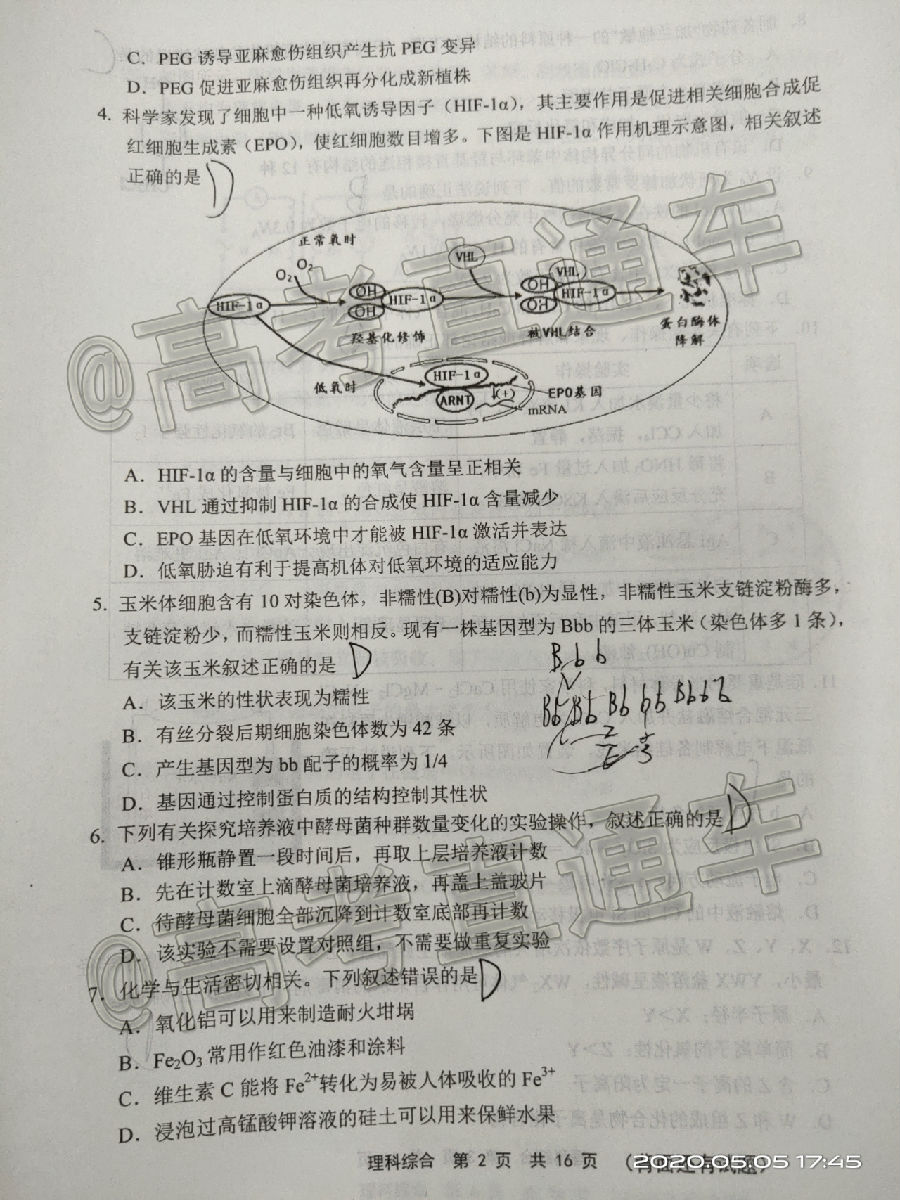 C．PEG 诱导亚麻愈伤组织产生抗 PEG 变异
D．PEG 促进亚麻愈伤组织再分化成新植株
4．科学家发现了细胞中一种低氧诱导因子（HIF-1α），其主要作用是促进相关细胞合成促
红细胞生成素（EPO），使红细胞数目增多。下图是 HIF-1α 作用机理示意图，相关叙述
正确的是 D
正常氧时
O₂ O₂
VHL
HIF-1α
OH
OH
HIF-1α
OH
OH
VHL
HIF-1α
羟基化修饰
被VHL结合
蛋白酶体
降解
低氧时
HIF-1α
ARNT
(+)
EPO基因
mRNA
A．HIF-1α 的含量与细胞中的氧气含量呈正相关
B．VHL 通过抑制 HIF-1α 的合成使 HIF-1α 含量减少
C．EPO 基因在低氧环境中才能被 HIF-1α 激活并表达
D．低氧胁迫有利于提高机体对低氧环境的适应能力
5．玉米体细胞含有 10 对染色体，非糯性(B)对糯性(b)为显性，非糯性玉米支链淀粉酶多，
支链淀粉少，而糯性玉米则相反。现有一株基因型为 Bbb 的三体玉米（染色体多 1 条），
有关该玉米叙述正确的是 D
B b b
Bb Bb Bb bb
A．该玉米的性状表现为糯性
B．有丝分裂后期细胞染色体数为 42 条
C．产生基因型为 bb 配子的概率为 1/4
D．基因通过控制蛋白质的结构控制其性状
6．下列有关探究培养液中酵母菌种群数量变化的实验操作，叙述正确的是 D
A．锥形瓶静置一段时间后，再取上层培养液计数
B．先在计数室上滴酵母菌培养液，再盖上盖玻片
C．待酵母菌细胞全部沉降到计数室底部再计数
D．该实验不需要设置对照组，不需要做重复实验
7．化学与生活密切相关。下列叙述错误的是 D
A．氧化铝可以用来制造耐火坩埚
B．Fe₂O₃ 常用作红色油漆和涂料
C．维生素 C 能将 Fe²⁺转化为易被人体吸收的 Fe³⁺
D．浸泡过高锰酸钾溶液的硅土可以用来保鲜水果
理科综合 第 2 页 共 16 页
（背面还有试题）
2020.05.05 17:45
@高考直通车
@高考直通车